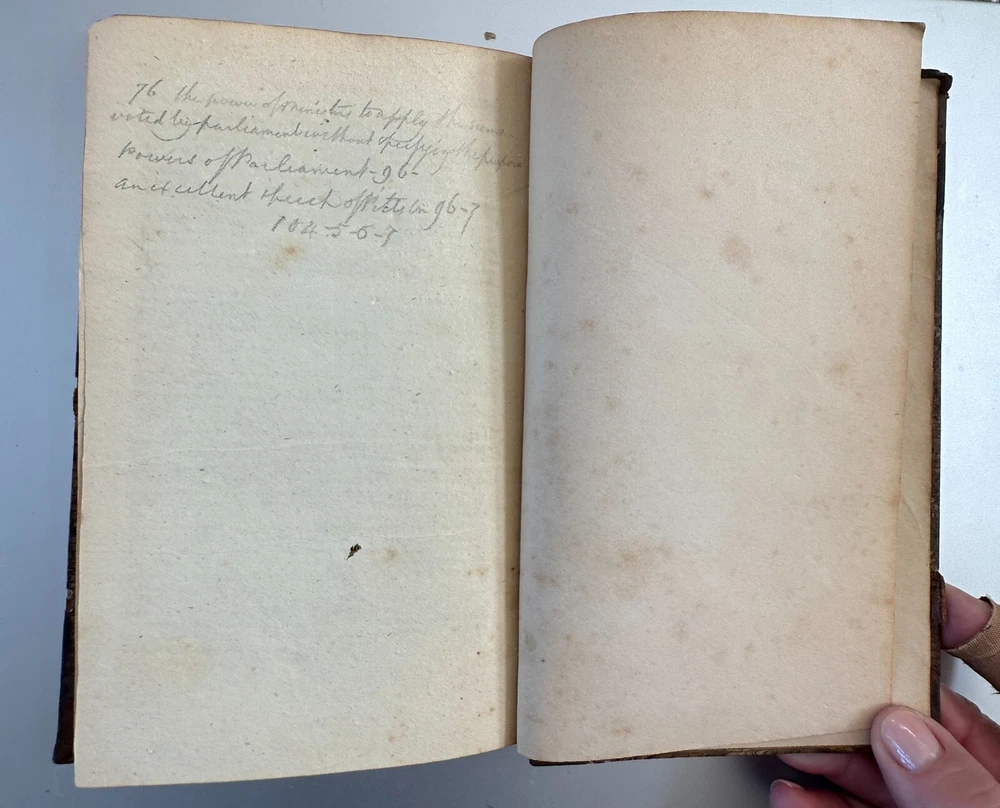 76 the power of ministers to apply the sums
voted by parliament without specifying the purpose
Powers of Parliament - 96 -
an excellent speech of Pitts on 96-7
104-5-6-7